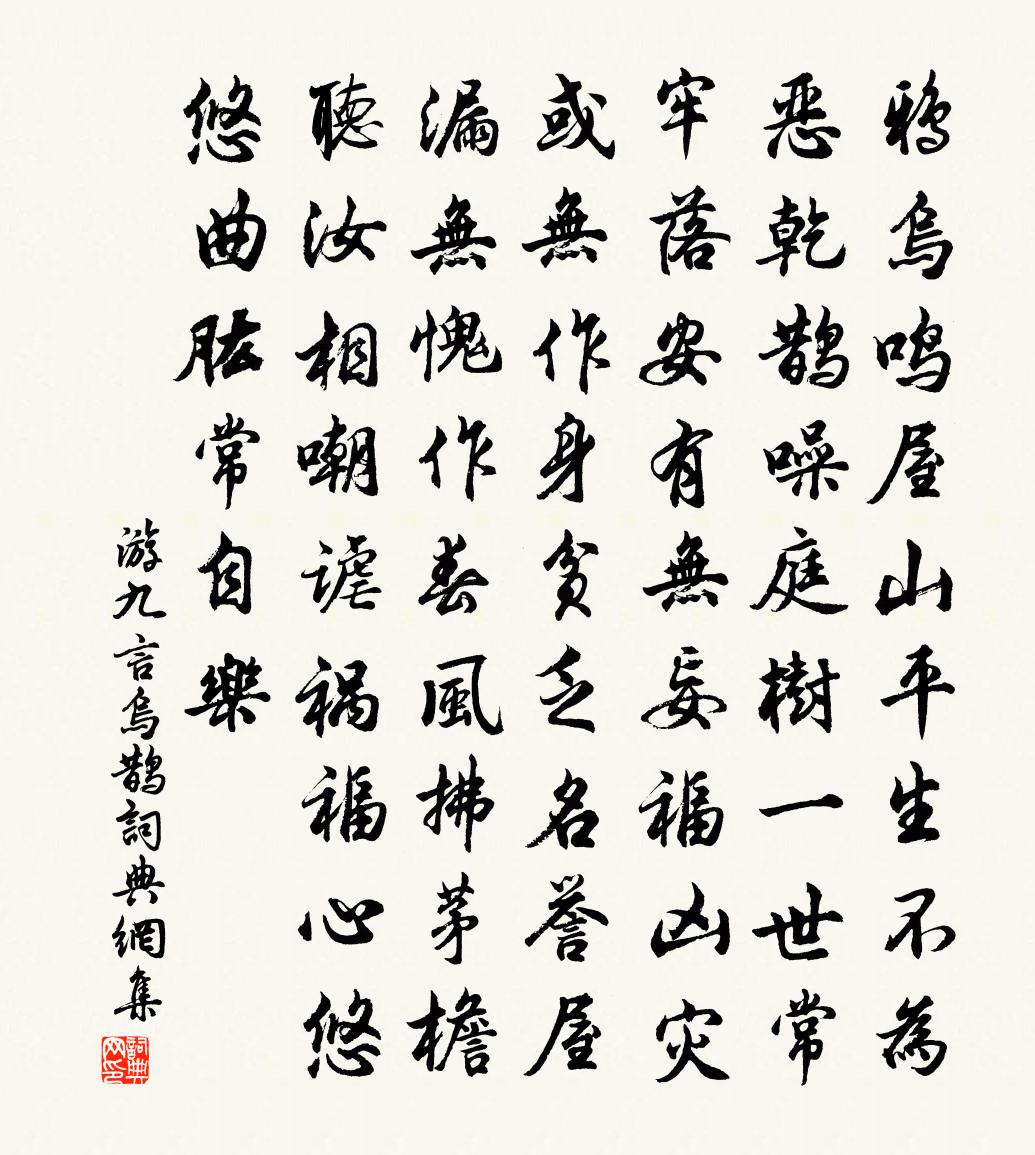 鴉烏鳴屋山平生不為
惡乾鵲噪庭樹一世常
牢落安有無妄福凶灾
或無作身貧乏名譽屋
漏無愧作春風拂茅檐
聽汝相嘲謔禍福心悠
悠曲肱常自樂
游九言烏鵲詞典網集
詞典网印